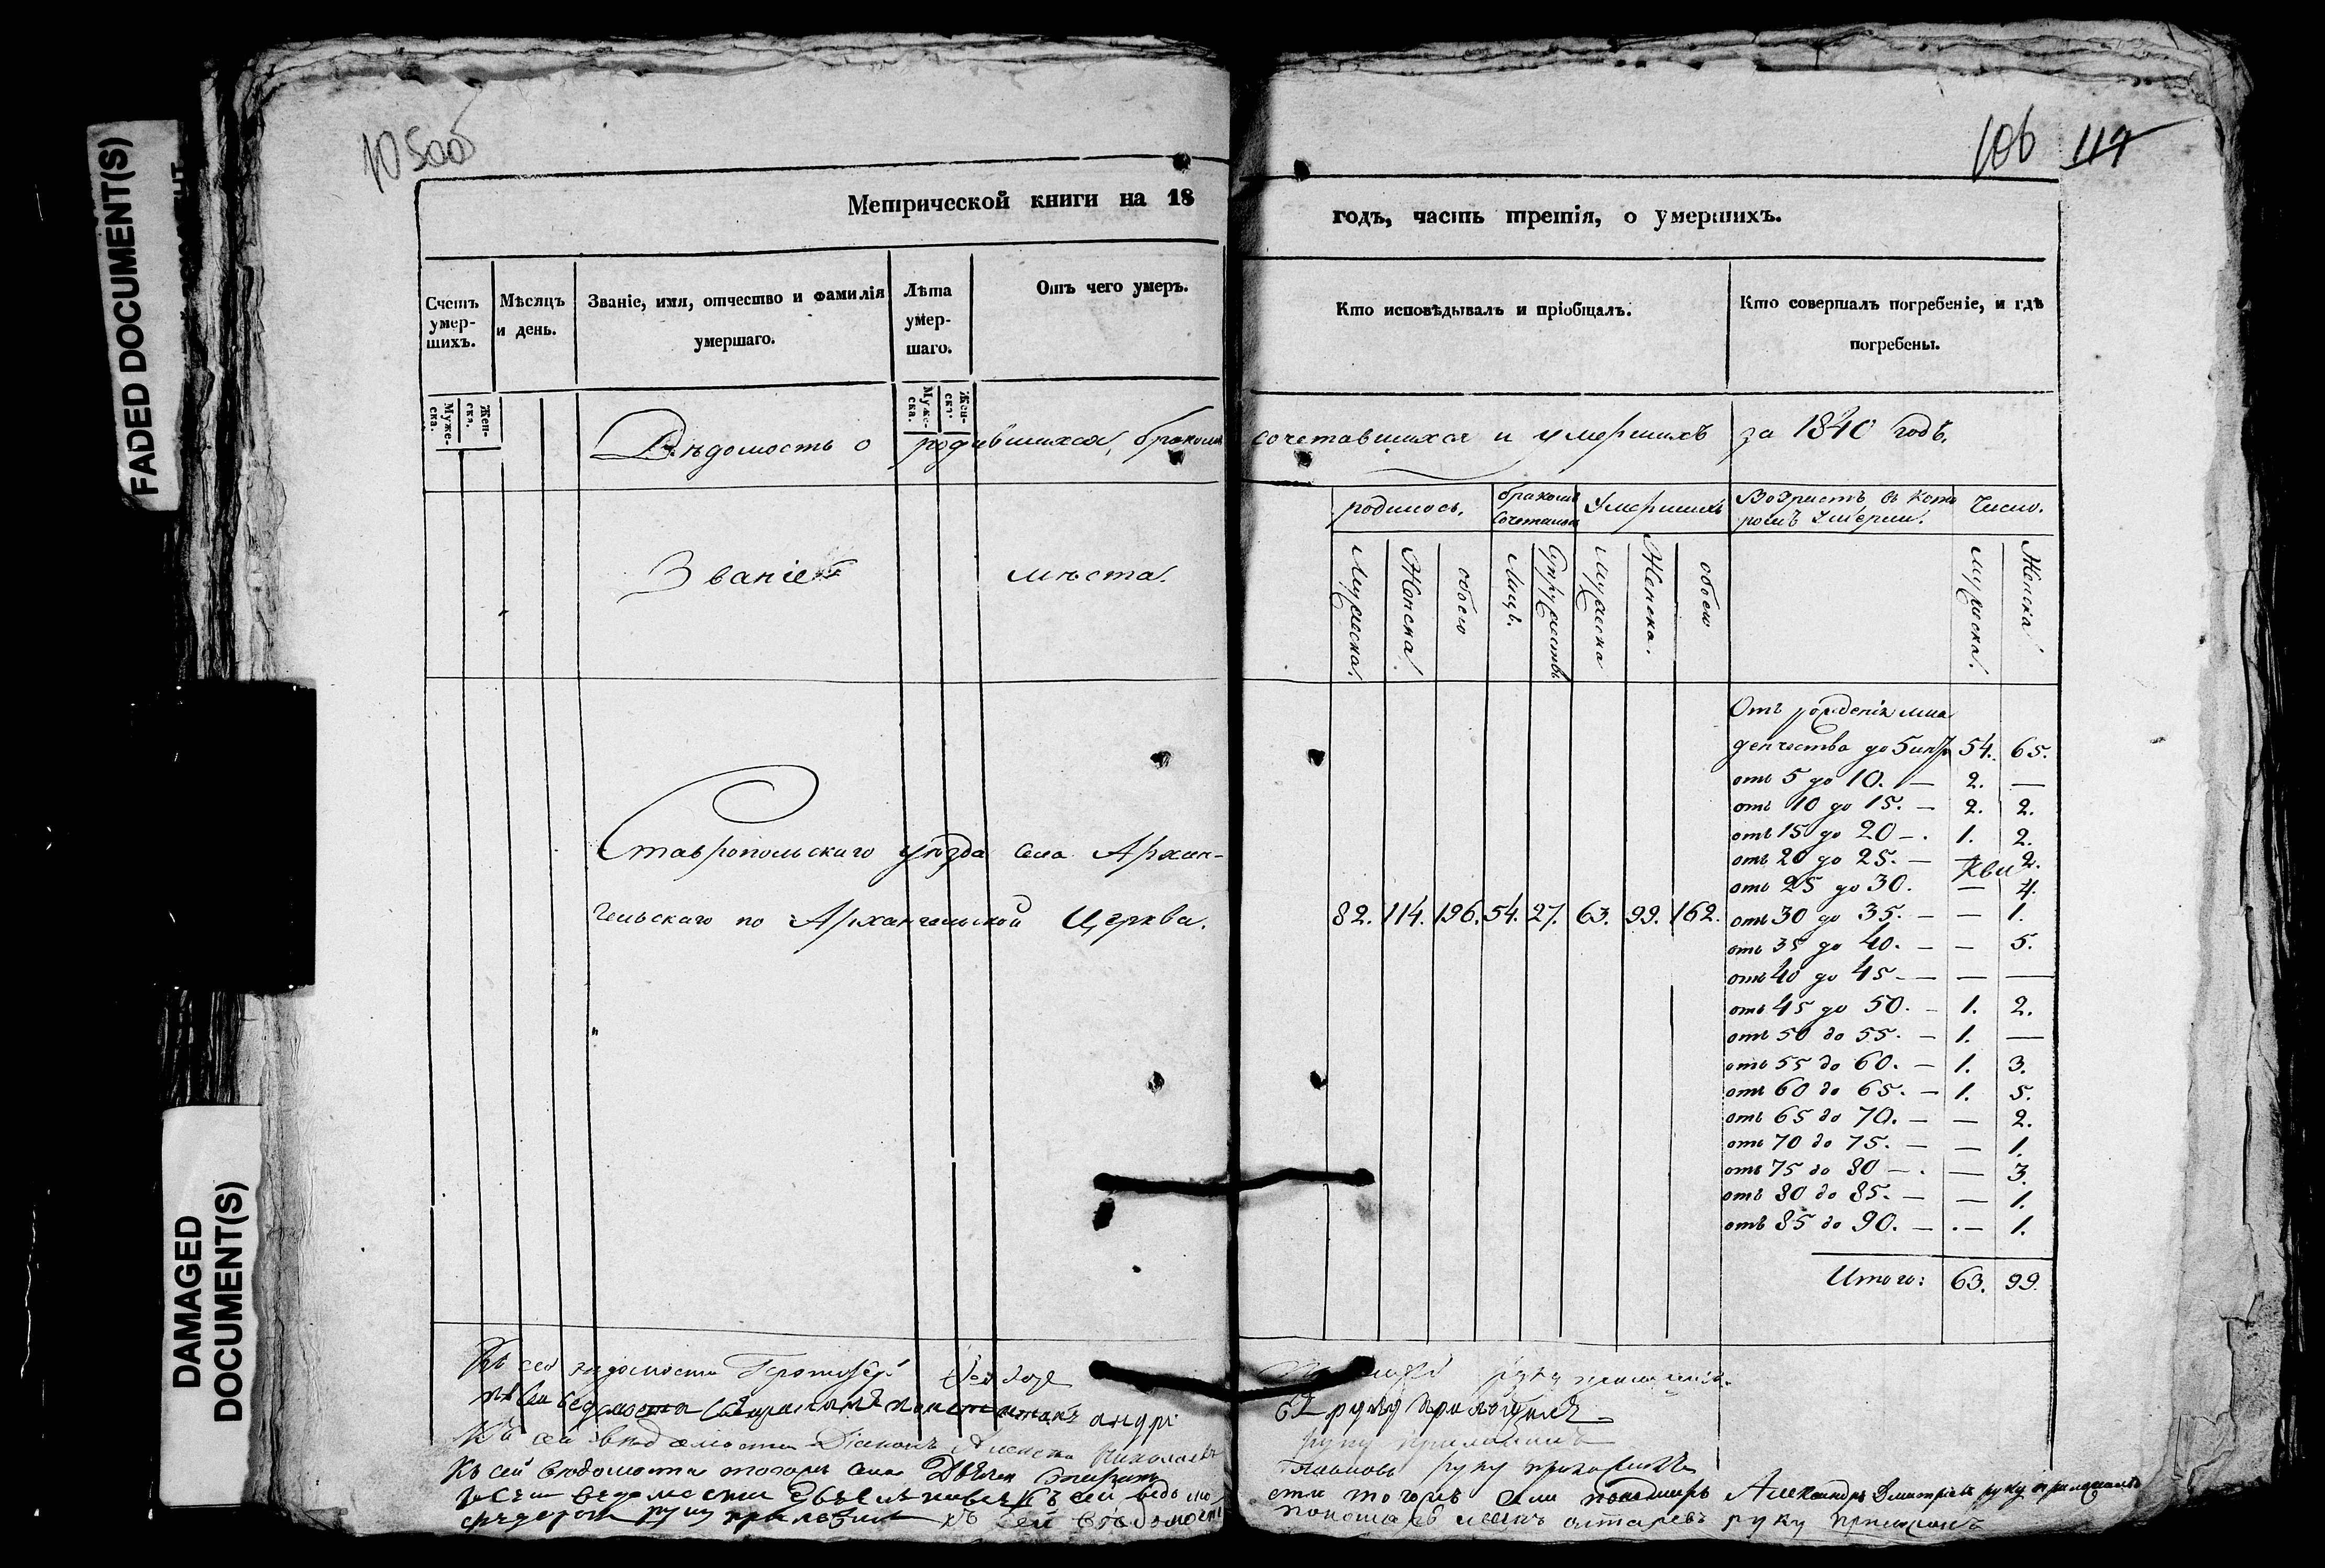 FADED DOCUMENT(S)
DAMAGED
DOCUMENT(S)
10500
106 117
Метрической книги на 18
годъ, часть третія, о умершихъ.
Счетъ умер-шихъ.
Муже-ска.
Жен-ска.
Мѣсяцъ и день.
Званіе, имя, отчество и фамилія умершаго.
Лѣта умер-шаго.
Муже-ска.
Жен-ска.
Отъ чего умеръ.
Кто исповѣдывалъ и пріобщалъ.
Кто совершалъ погребеніе, и гдѣ погребены.
Вѣдомость о родившихся, бракомъ сочетавшихся и умершихъ за 1840 годъ.
Званіе мѣста.
родилось.
Мужеска.
Женска.
обоего
бракомъ сочеталось
Лицъ.
Супружествъ
Умершихъ
Мужеска
Женска.
обоего
Возрастъ въ кото
ромъ умерли.
Число.
Мужеска.
Женска
Ставропольскаго уѣзда села Архан-
гельскаго по Архангельской Церкви.
82. 114. 196. 54. 27. 63. 99. 162.
Отъ рожденія мла
денчества до 5 54. 65.
отъ 5 до 10. — 2. —
отъ 10 до 15. — 2. 2.
отъ 15 до 20 —. 1. 2.
отъ 20 до 25. — — 2.
отъ 25 до 30. — 4.
отъ 30 до 35. — — 1.
отъ 35 до 40. — — 5.
отъ 40 до 45 — — —
отъ 45 до 50. — 1. 2.
отъ 50 до 55. — 1. —
отъ 55 до 60. — 1. 3.
отъ 60 до 65. — 1. 5.
отъ 65 до 70. — — 2.
отъ 70 до 75. — — 1.
отъ 75 до 80 —. — 3.
отъ 80 до 85. — — 1.
отъ 85 до 90. — — 1.
Итого: 63. 99.
Къ сей вѣдомости руку приложилъ.
руку приложилъ
Къ сей вѣдомости Діаконъ руку приложилъ
Къ сей вѣдомости тогожъ села руку приложилъ
къ сей вѣдомости тогожъ села пономарь Александръ Дмитріевъ руку приложилъ
руку приложилъ къ сей вѣдомости руку приложилъ